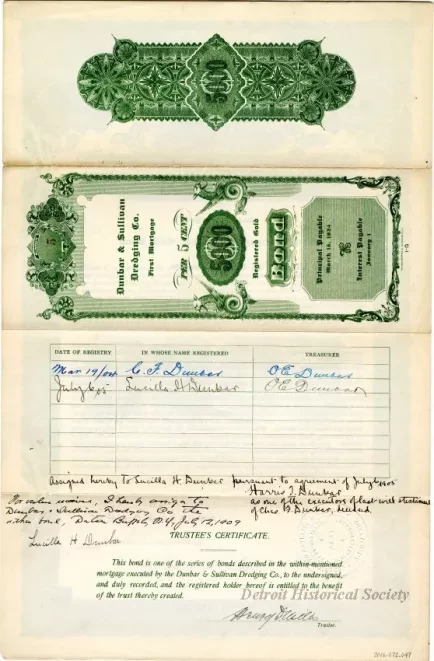 5000
Dunbar & Sullivan
Dredging Co.
First Mortgage
PER 5 CENT
5000
Registered Gold
Bond
Principal Payable
March 15, 1924
Interest Payable
January 1
5
DATE OF REGISTRY IN WHOSE NAME REGISTERED TREASURER
Mar 19/04 C. F. Dunbar O E Dunbar
July 6, 05 Lucilla H Dunbar O E Dunbar
Assigned hereby to Lucilla H. Dunbar pursuant to agreement of July 6, 1905
Harris T. Dunbar
as one of the executors of last will & testament
of Chas F. Dunbar, deceased.
For value received, I hereby assign to
Dunbar & Sullivan Dredging Co the
within bond, Dated Buffalo, N.Y., July 12, 1909
Lucilla H Dunbar
TRUSTEE'S CERTIFICATE.
This bond is one of the series of bonds described in the within-mentioned
mortgage executed by the Dunbar & Sullivan Dredging Co., to the undersigned,
and duly recorded, and the registered holder hereof is entitled to the benefit
of the trust thereby created.
Detroit Historical Society
Trustee.